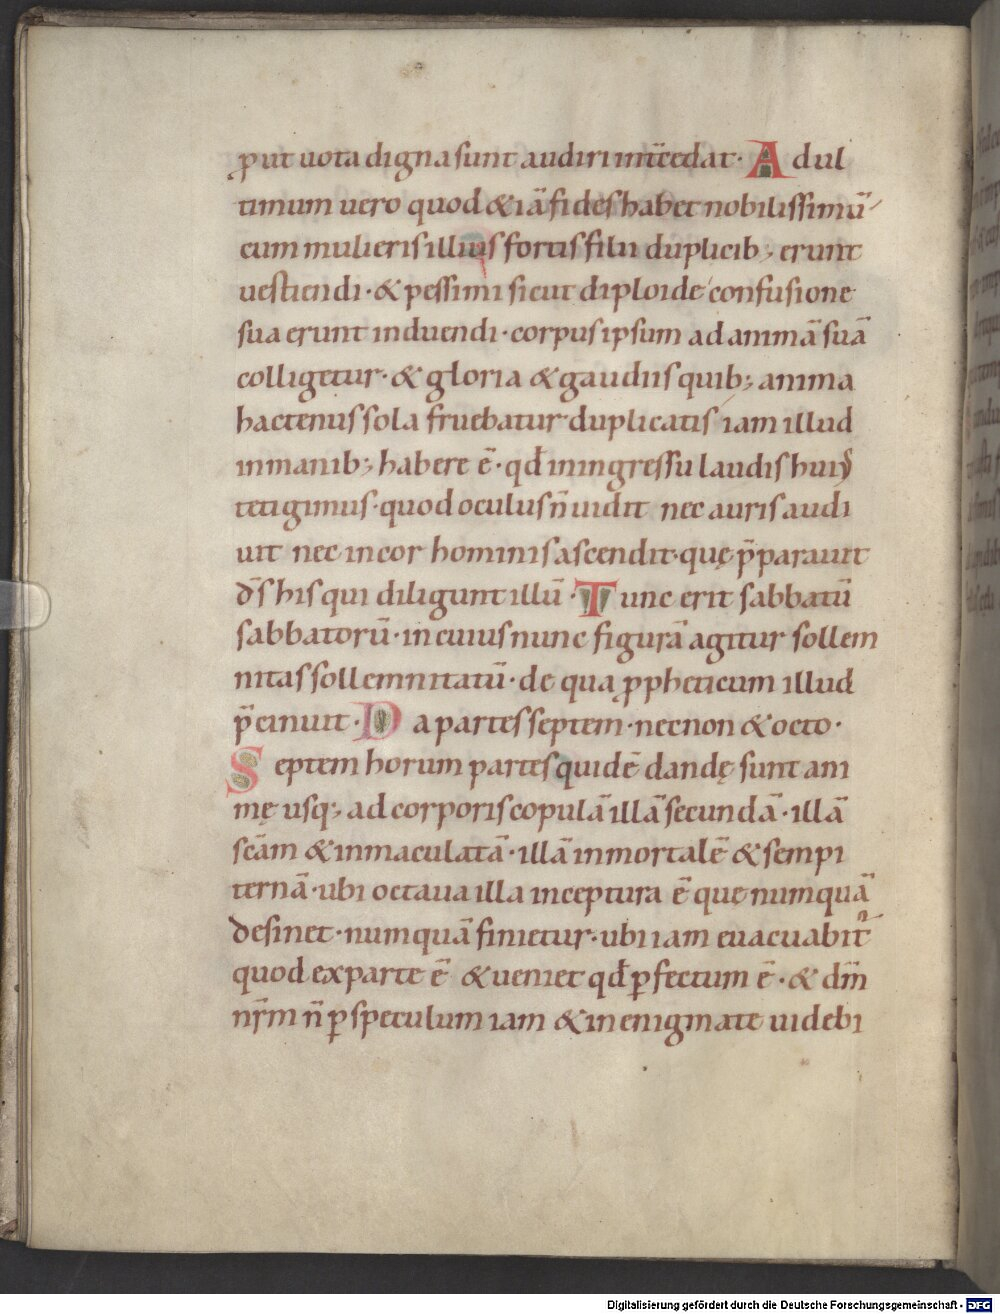 ꝓut uota digna sunt audiri int̄cedat· Adul
timum uero quod & iā fides habet nobilissimū
cum mulieris illius fortis filii duplicib; erunt
uestiendi· & pessimi sicut diploide confusione
sua erunt induendi· corpus ipsum ad animā suā
colligetur· & gloria & gaudiis quib; anima
hactenus sola fruebatur duplicatis iam illud
in manib; habere ē· qđ in ingressu laudis huiꝰ
tetigimus· quod oculus n̄ uidit nec auris audi
uit nec in cor hominis ascendit· quę p̄parauit
d̄s his qui diligunt illū· Tunc erit sabbatū
sabbatorū· in cuius nunc figurā agitur sollem
nitas sollemnitatū· de qua ꝓpheticum illud
p̄cinuit· Da partes septem· necnon & octo·
Septem horum partes quidē dandę sunt ani
mę usq; ad corporis copulā illā secundā· illā
sc̄am & inmaculatā· illā inmortalē & sempi
ternā· ubi octaua illa inceptura ē quę numquā
desinet· numquā finietur· ubi iam euacuabit᷑
quod ex parte ē & ueniet qđ ꝑfectum ē· & dn̄m
nr̄m n̄ ꝑ speculum iam & in enigmate uidebi
Digitalisierung gefördert durch die Deutsche Forschungsgemeinschaft - DFG